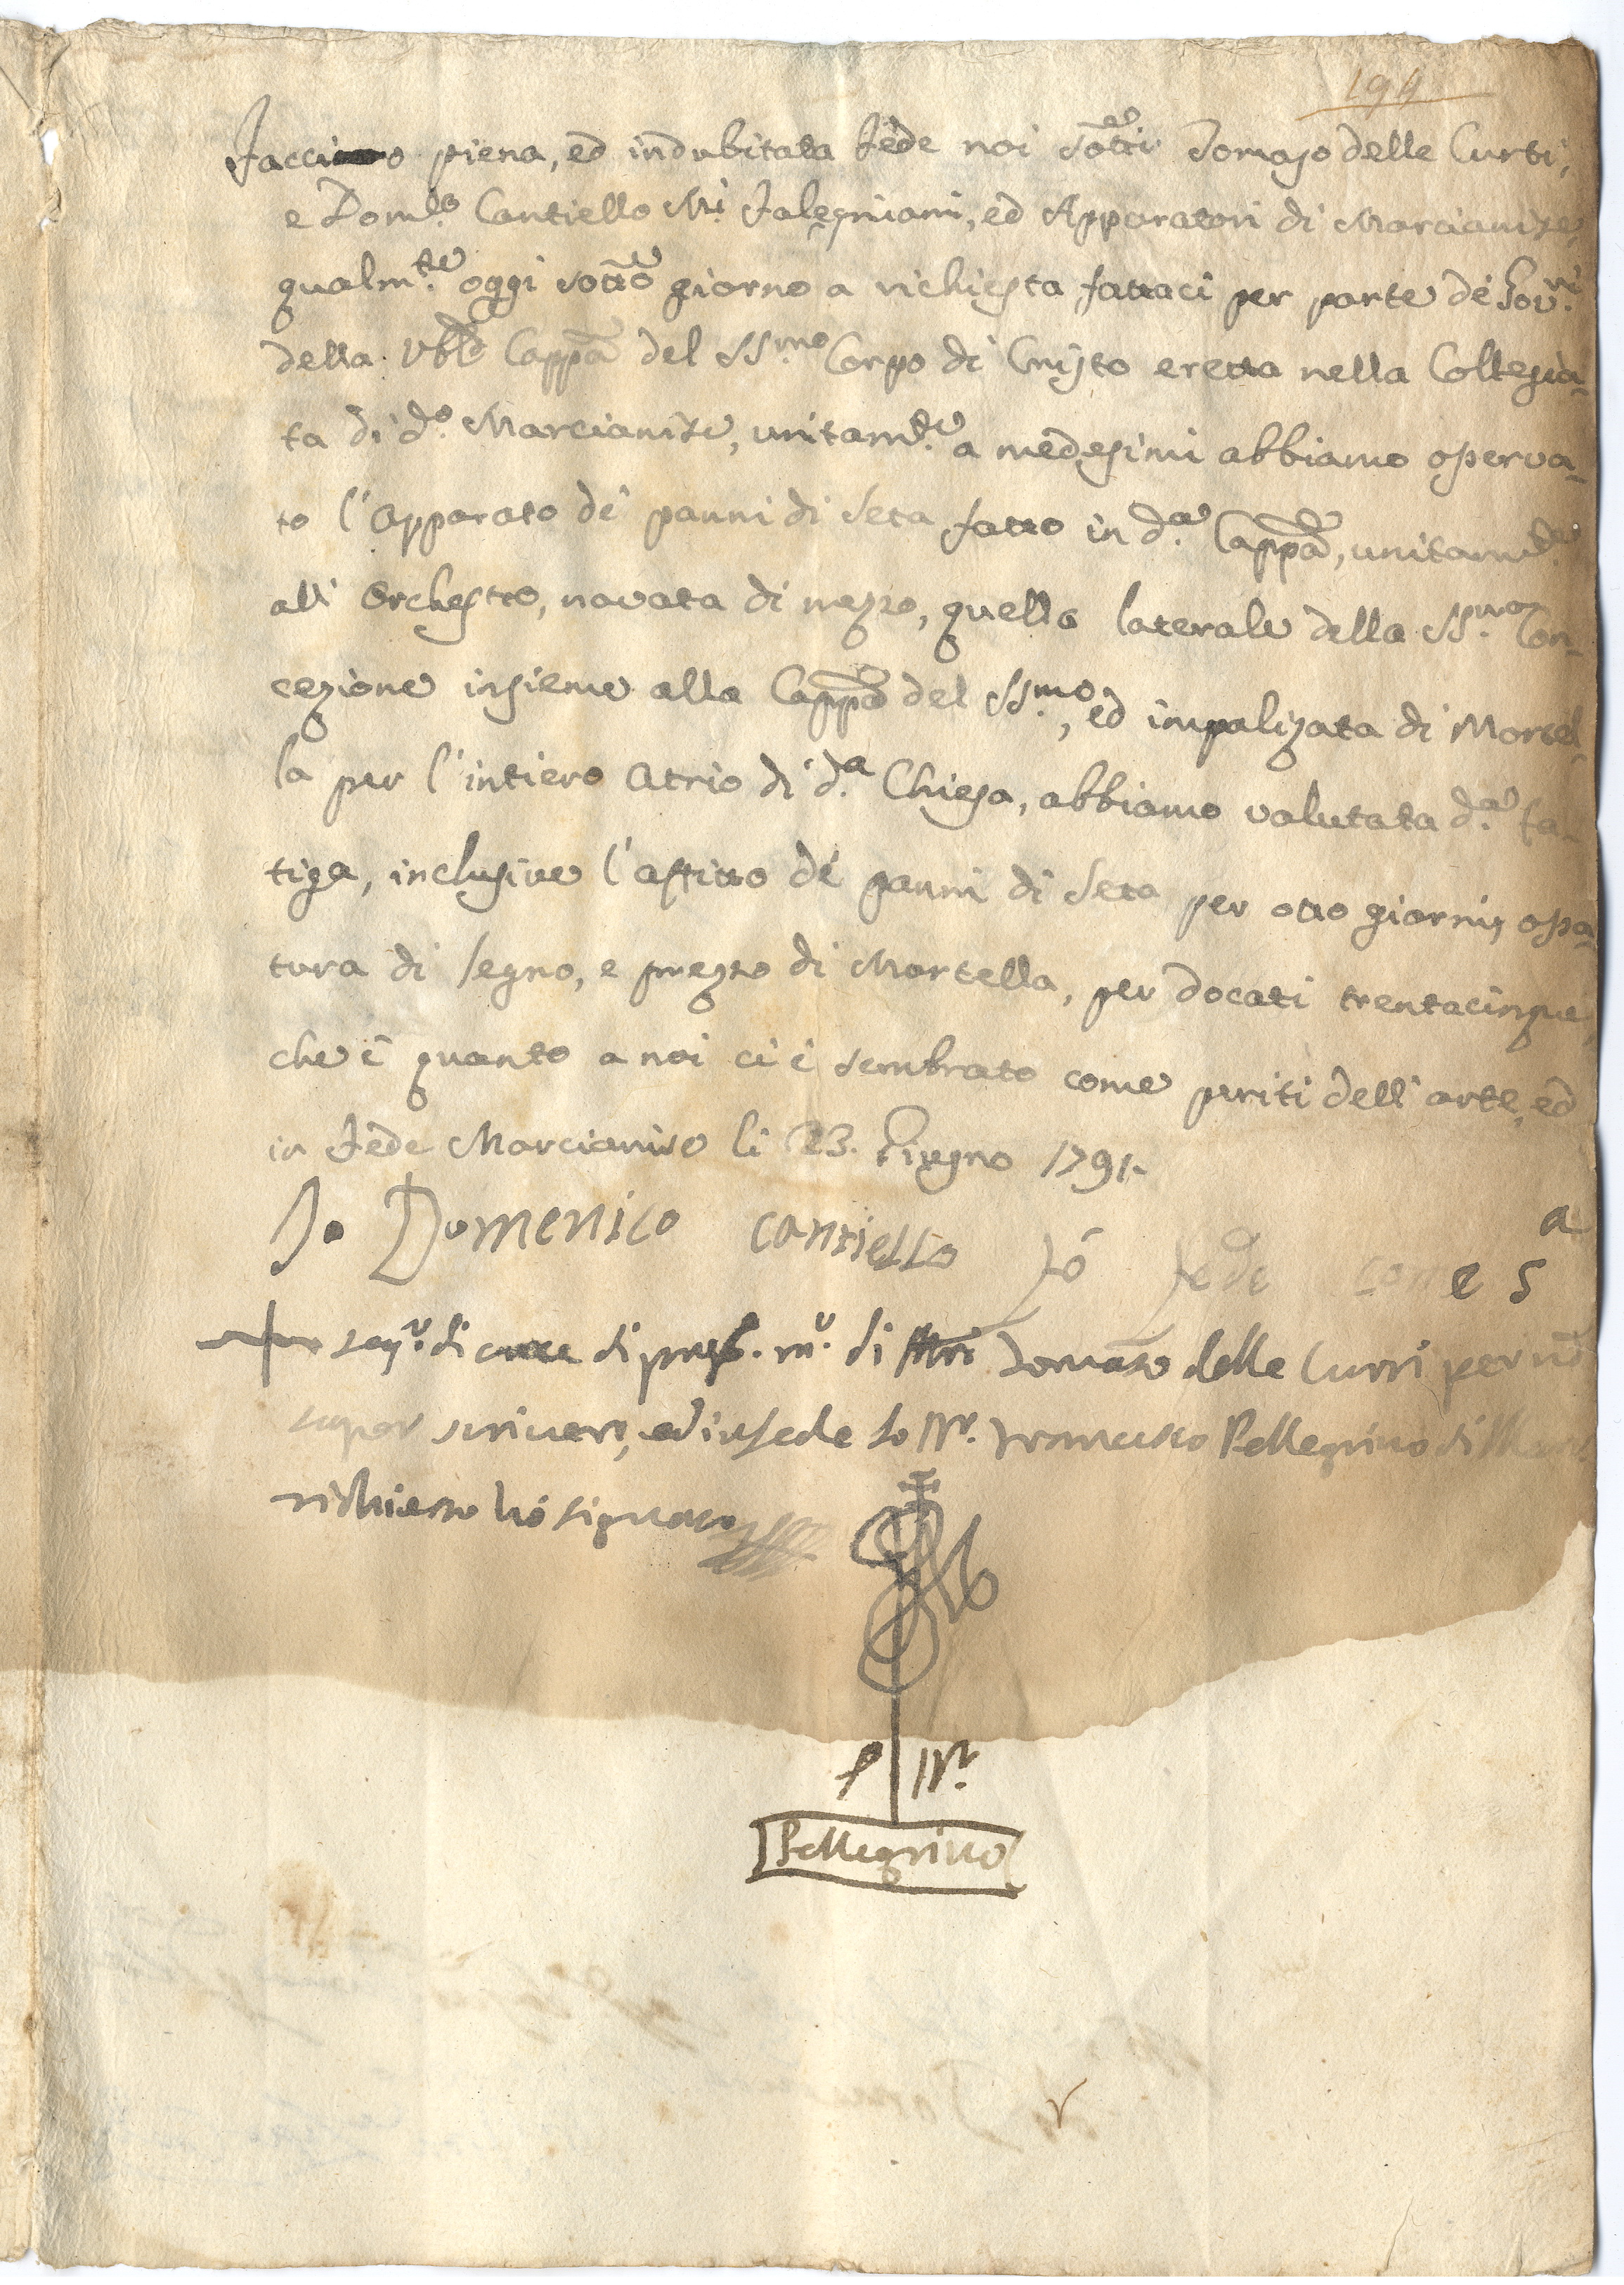 194
Facciamo piena, ed indubitata fede noi sottti Tomaso delle Curti,
e Dom.co Cantiello M.i Falegniami, ed Apparatori di Marcianise,
qualm.te oggi sotto giorno a richiesta fattaci per parte de Gov.ri
della Vble Cappa del SS.mo Corpo di Cristo eretta nella Collegia-
ta di d.o Marcianise, unitam.te a medesimi abbiamo osserva-
to l'apparato de' panni di seta fatto in d.a Cappa, unitam.te
all' Orchestro, navata di mezzo, quella laterale della SS.ma Con-
cezione insieme alla Cappa del SS.mo, ed impalizata di Mortel-
la per l'intiero Atrio di d.a Chiesa, abbiamo valutata d.a fa-
tiga, inclusive l'affitto de' panni di seta per otto giorni, ossa-
tura di legno, e prezzo di Mortella, per docati trentacinque,
che è quanto a noi ci è sembrato come periti dell'arte, ed
in fede Marcianise li 23. Giugno 1791.
Io Domenico Cantiello fó fede come sa
seg.o di croce di pro.a m.o di Tomaso delle Curti per nō
saper scrivere, ed in fede Io Nr. Francesco Pellegrino di
richiesto hó signato
P Nr.
Pellegrino